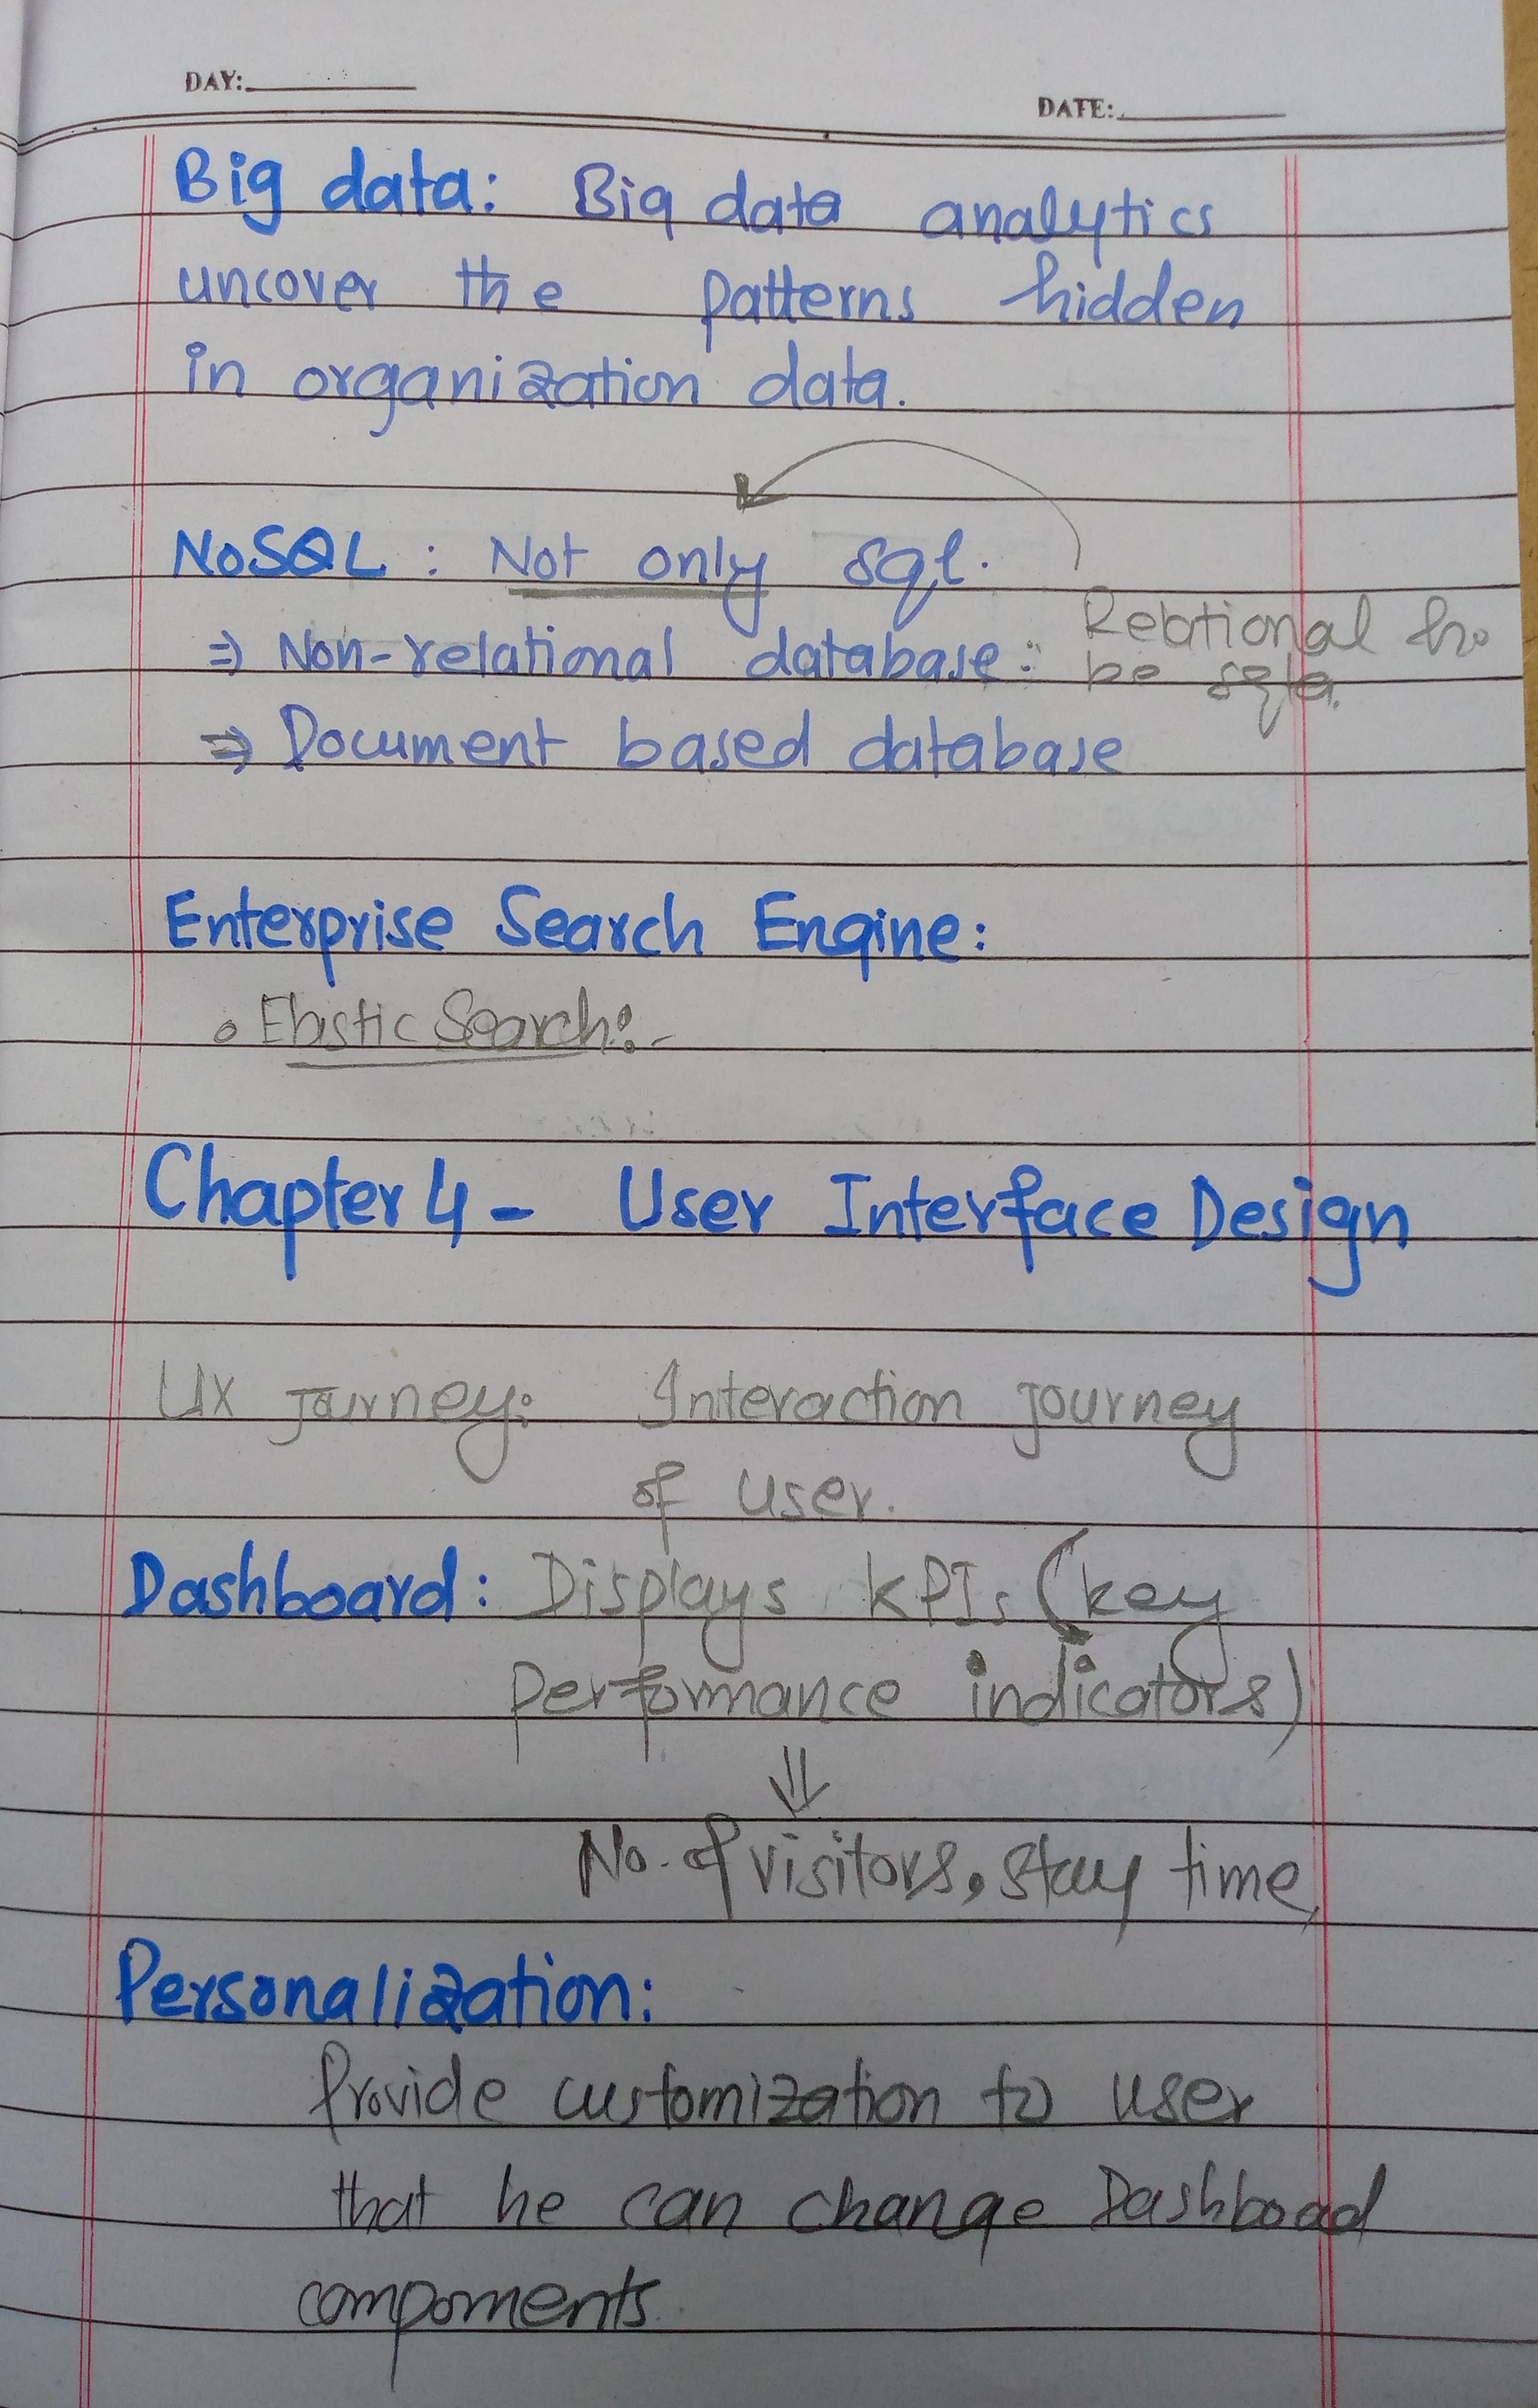 DAY:
DATE:
Big data: Big data analytics
uncover the patterns hidden
in organization data.
NoSQL : Not only sql.
⇒ Non-relational database:
Relational
be
⇒ Document based database
Enterprise Search Engine:
• Elastic Search:-
Chapter 4 - User Interface Design
UX journey: Interaction journey
of user.
Dashboard: Displays KPIs (key
performance indicators)
⇓
No. of visitors, stay time,
Personalization:
Provide customization to user
that he can change Dashboad
compoments.